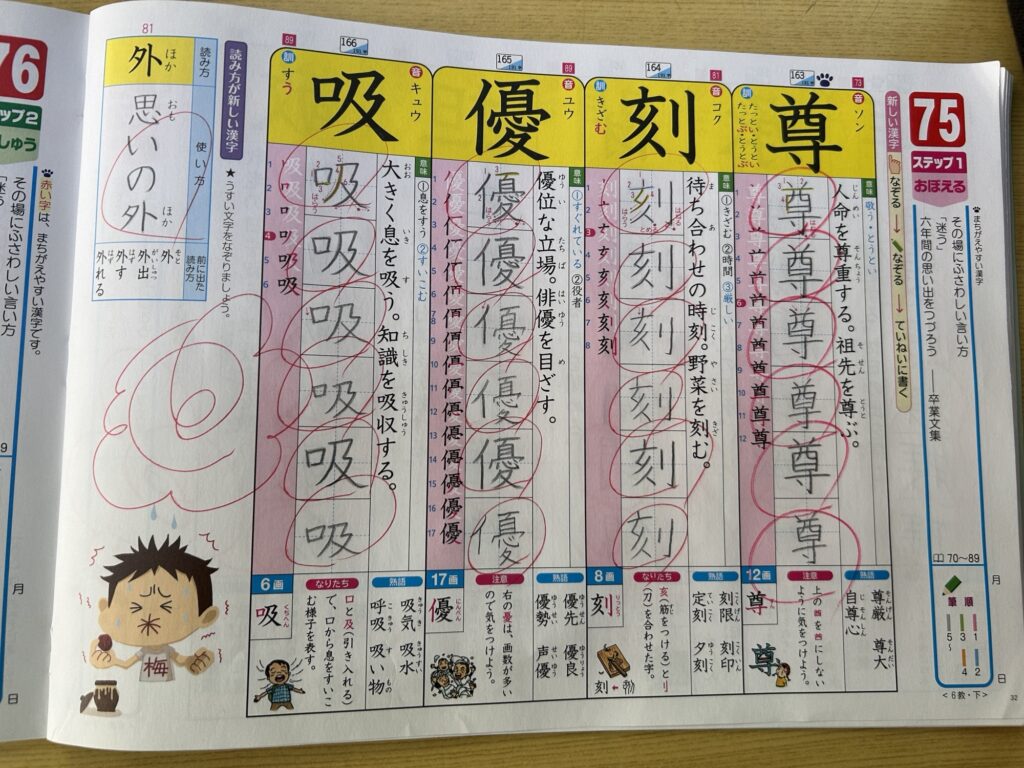 75
ステップ1
おぼえる
まちがえやすい漢字
その場にふさわしい言い方
「迷う」
六年間の思い出をつづろう ――卒業文集
70〜89
筆順
1 2
3 4
5〜
月 日
<6教・下>
32
新しい漢字
なぞる→なぞる→ていねいに書く
73
163
音 ソン
訓 たっとい・とうとい
たっとぶ・とうとぶ
尊
意味 敬う・とうとい
人命を尊重する。祖先を尊ぶ。
尊
尊
尊
尊
尊
尊
熟語
尊厳 尊大
自尊心
注意
上の酋を酉にしないように気をつけよう。
12画
尊
尊
81
164
音 コク
訓 きざむ
刻
意味 ①きざむ ②時間 ③厳しい
待ち合わせの時刻。野菜を刻む。
刻
刻
刻
刻
刻
刻
熟語
刻限 刻印
定刻 夕刻
なりたち
亥(筋をつける)とリ(刀)を合わせた字。
8画
刻
りっとう
89
165
音 ユウ
優
意味 ①すぐれている ②役者
優位な立場。俳優を目ざす。
優
優
優
優
優
優
熟語
優先 優良
優勢 声優
注意
右の憂は、画数が多いので気をつけよう。
17画
優
にんべん
89
166
音 キュウ
訓 すう
吸
意味 ①息をすう ②すいこむ
大きく息を吸う。知識を吸収する。
吸
吸
吸
吸
吸
吸
熟語
吸気 吸水
呼吸 吸い物
なりたち
口と及(引き入れる)で、口から息をすいこむ様子を表す。
6画
吸
くちへん
読み方が新しい漢字
★うすい文字をなぞりましょう。
81
読み方
外 ほか
使い方
思いの外
前に出た読み方
外
外出
外す
外れる
梅
76
ステップ2
しゅう
赤い字は、まちがえやすい漢字です。
その場にふさわしい言い方
「迷う」
月 日